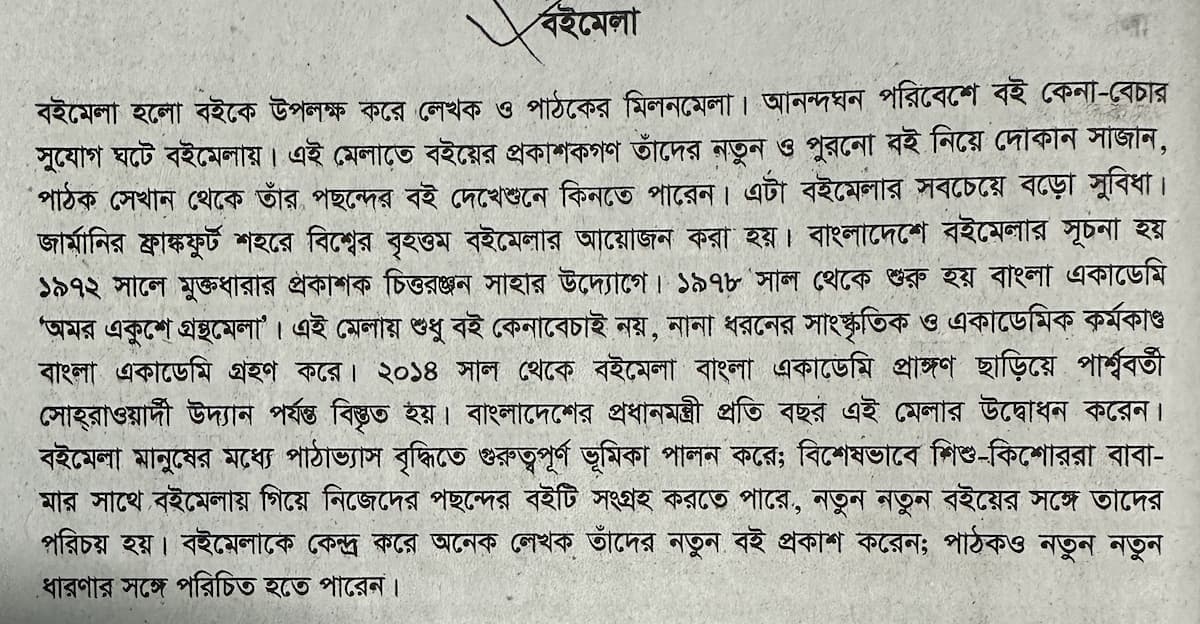 বইমেলা
বইমেলা হলো বইকে উপলক্ষ করে লেখক ও পাঠকের মিলনমেলা। আনন্দঘন পরিবেশে বই কেনা-বেচার
সুযোগ ঘটে বইমেলায়। এই মেলাতে বইয়ের প্রকাশকগণ তাঁদের নতুন ও পুরনো বই নিয়ে দোকান সাজান,
পাঠক সেখান থেকে তাঁর পছন্দের বই দেখেশুনে কিনতে পারেন। এটা বইমেলার সবচেয়ে বড়ো সুবিধা।
জার্মানির ফ্রাঙ্কফুর্ট শহরে বিশ্বের বৃহত্তম বইমেলার আয়োজন করা হয়। বাংলাদেশে বইমেলার সূচনা হয়
১৯৭২ সালে মুক্তধারার প্রকাশক চিত্তরঞ্জন সাহার উদ্যোগে। ১৯৭৮ সাল থেকে শুরু হয় বাংলা একাডেমি
'অমর একুশে গ্রন্থমেলা'। এই মেলায় শুধু বই কেনাবেচাই নয়, নানা ধরনের সাংস্কৃতিক ও একাডেমিক কর্মকাণ্ড
বাংলা একাডেমি গ্রহণ করে। ২০১৪ সাল থেকে বইমেলা বাংলা একাডেমি প্রাঙ্গণ ছাড়িয়ে পার্শ্ববর্তী
সোহ্‌রাওয়ার্দী উদ্যান পর্যন্ত বিস্তৃত হয়। বাংলাদেশের প্রধানমন্ত্রী প্রতি বছর এই মেলার উদ্বোধন করেন।
বইমেলা মানুষের মধ্যে পাঠাভ্যাস বৃদ্ধিতে গুরুত্বপূর্ণ ভূমিকা পালন করে; বিশেষভাবে শিশু-কিশোররা বাবা-
মার সাথে বইমেলায় গিয়ে নিজেদের পছন্দের বইটি সংগ্রহ করতে পারে, নতুন নতুন বইয়ের সঙ্গে তাদের
পরিচয় হয়। বইমেলাকে কেন্দ্র করে অনেক লেখক তাঁদের নতুন বই প্রকাশ করেন; পাঠকও নতুন নতুন
ধারণার সঙ্গে পরিচিত হতে পারেন।